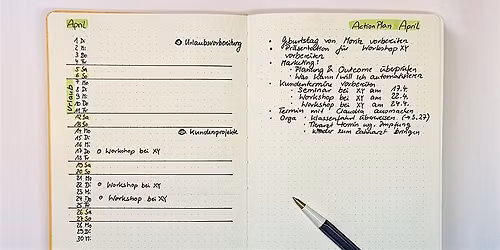 April
1 Di
2 Mi
3 Do
4 Fr
5 Sa
6 So
7 Mo
8 Di
9 Mi
10 Do
11 Fr
12 Sa
13 So
14 Mo
15 Di
16 Mi
17 Do
18 Fr
19 Sa
20 So
21 Mo
22 Di
23 Mi
24 Do
25 Fr
26 Sa
27 So
28 Mo
29 Di
30 Mi
Urlaub
Urlaubsvorbereitung
Kundenprojekte
Workshop bei XY
Workshop bei XY
Workshop bei XY
Action Plan April
Geburtstag von Moritz vorbereiten
Präsentation für Workshop XY
vorbereiten
Marketing:
Planung & Outcome überprüfen
Was kann / will ich automatisieren
Kundentermine vorbereiten
Seminar bei XY am 17.4.
Workshop bei XY am 22.4.
Workshop bei XY am 24.4.
Termin mit Claudia ausmachen
Orga • Klassenfahrt überweisen (→ S.27)
Tierarzt Termin wg. Impfung
Kinder zum Zahnarzt bringen